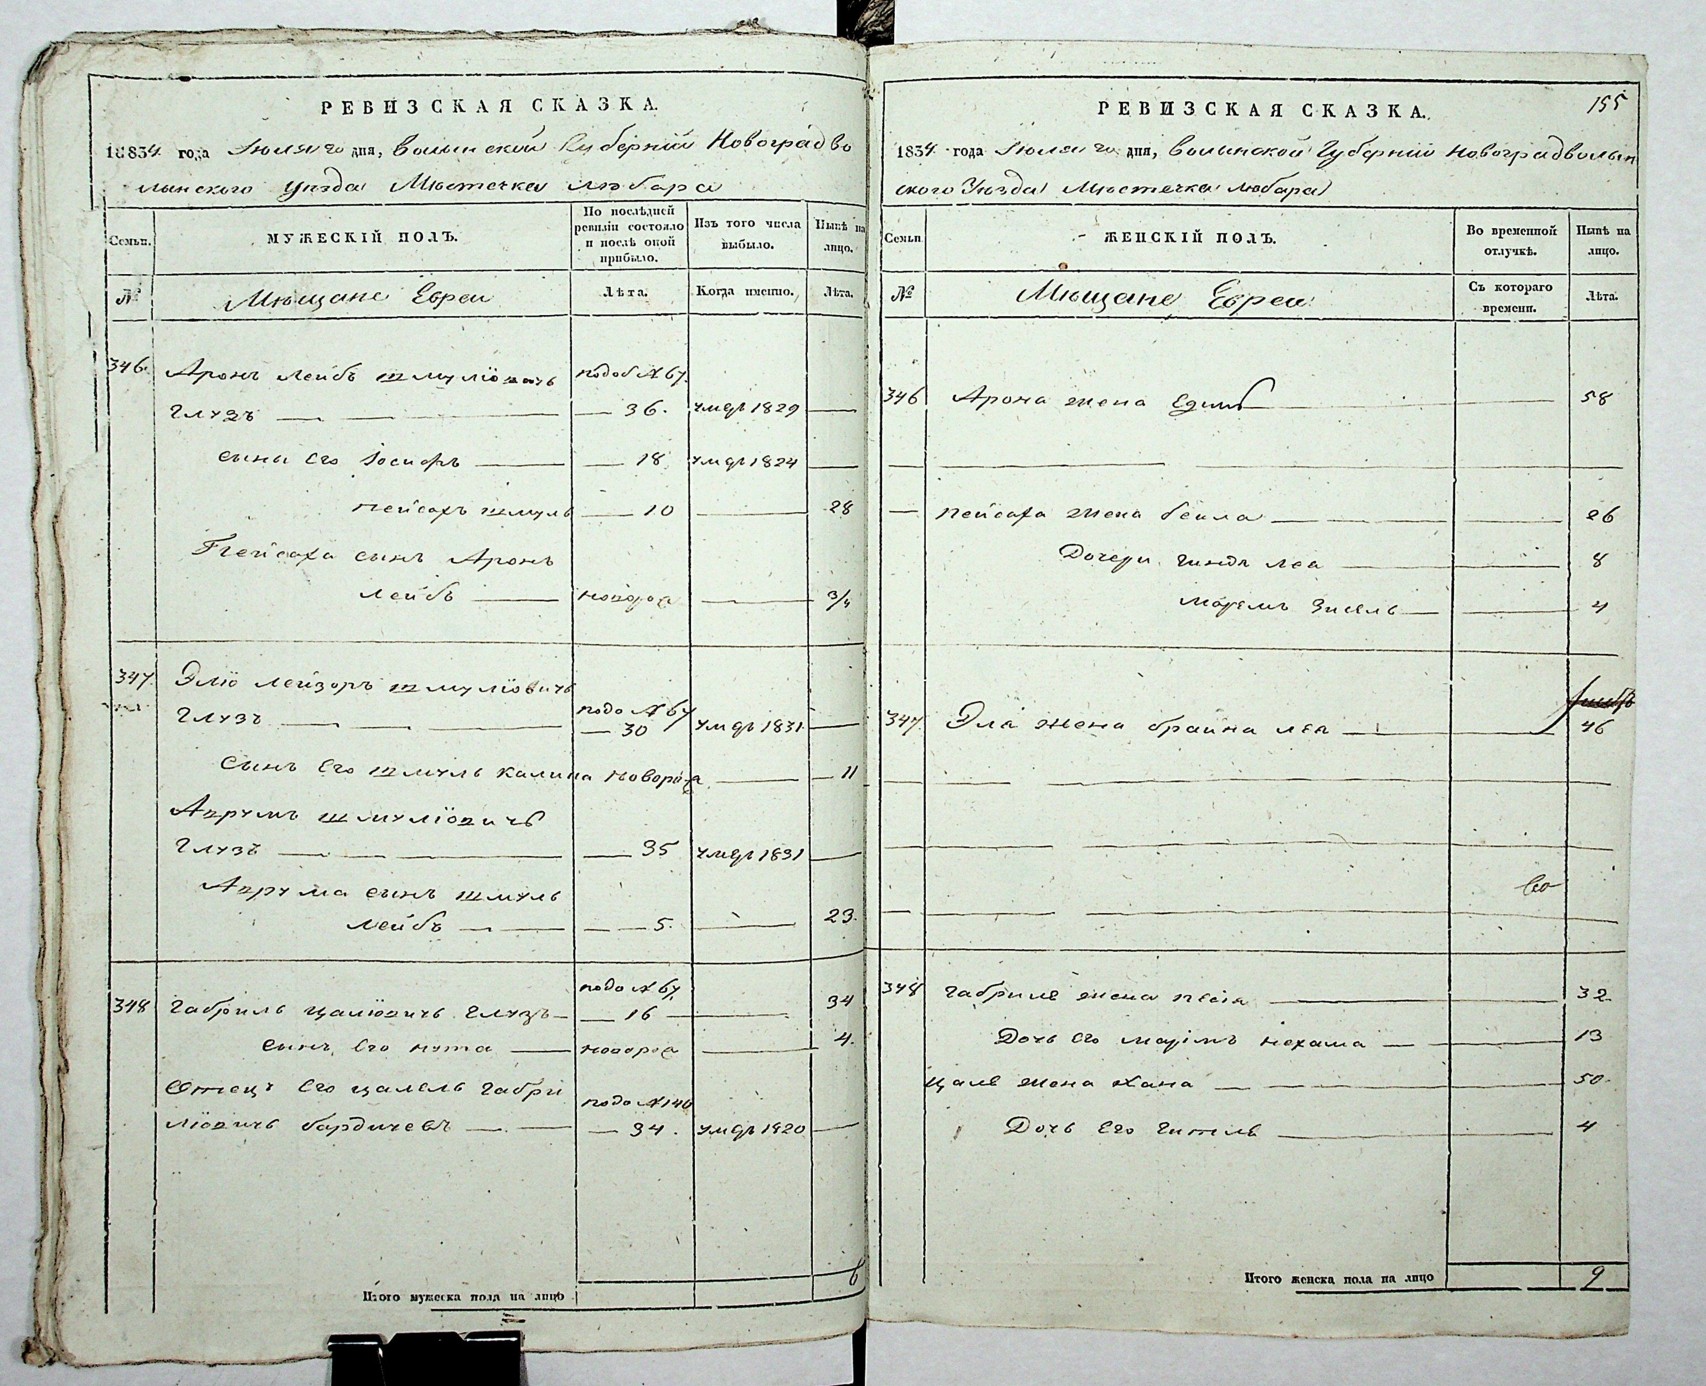 РЕВИЗСКАЯ СКАЗКА.
1834 года Июля го дня, Волынской Губерніи Новоградво
лынского Уезда Местечка Любара
Семьи.
МУЖЕСКІЙ ПОЛЪ.
По послѣдней ревизіи состояло и послѣ оной прибыло.
Изъ того числа выбыло.
Нынѣ на лицо.
№
Мещане Евреи
Лѣта.
Когда именно.
Лѣта.
346. Аронъ Лейбъ Шмуліовичъ подоб № 67.
Глузъ 36. умеръ 1829
сыны его Іосифъ 18 умеръ 1824
Пейсахъ Шмуль 10 28
Пейсаха сынъ Аронъ
Лейбъ новорож 3/4
347 Эліо Лейзоръ Шмуліовичъ
Глузъ подо № 67 30 умеръ 1831
Сынъ его Шмуль Калина новорож 11
Аврумъ Шмуліовичъ
Глузъ 35 умеръ 1831
Аврума сынъ Шмуль
Лейбъ 5. 23.
348 Габриль Цаліовичъ Глузъ подо № 67. 16 34
Сынъ его Нута новорож 4.
Отецъ его Цалель Габри
ліовичъ Бардичевъ подо № 140 34. умеръ 1820
Итого мужеска пола на лицо 6
РЕВИЗСКАЯ СКАЗКА. 155
1834 года Июля го дня, Волынской Губерніи Новоградволын
ского Уезда Местечка Любара
Семьи
ЖЕНСКІЙ ПОЛЪ.
Во временной отлучкѣ.
Нынѣ на лицо.
№
Мещане Евреи
Съ котораго времени.
Лѣта.
346 Арона жена 58
Пейсаха жена Беила 26
Дочери Гиндя Леа 8
Маремъ Зисель 4
347 Эла жена Браина Леа 46
348 Габриле жена Песія 32
Дочь его Марімъ Нехама 13
Цале жена Хана 50
Дочь его Гитель 4
Итого женска пола на лицо 9